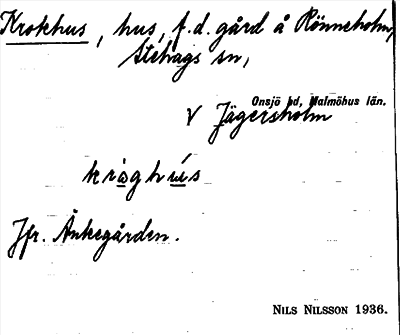 Krokhus, hus, f.d. gård å Rönneholm,
Stehags sn,
Onsjö hd, Malmöhus län.
V Jägersholm
kråghús
Jfr. Änkegården.
NILS NILSSON 1936.